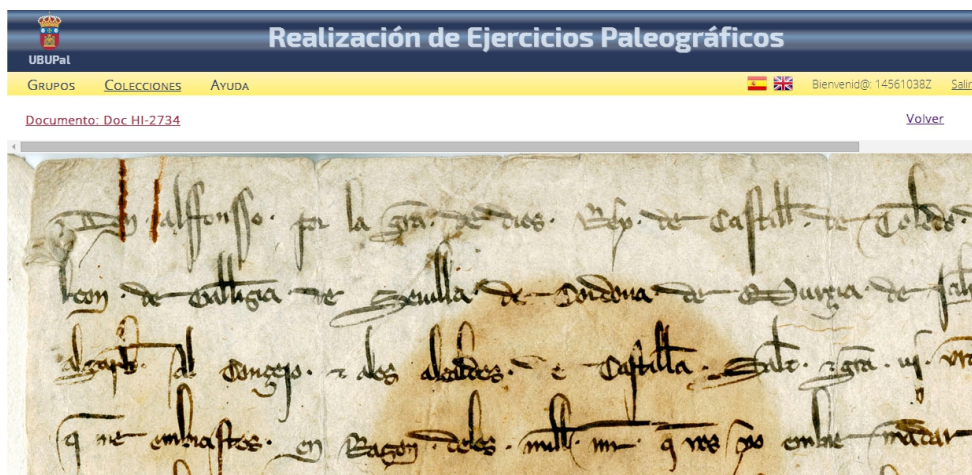 Realización de Ejercicios Paleográficos
UBUPal
Grupos Colecciones Ayuda Bienvenid@: 14561038Z Salir
Documento: Doc HI-2734 Volver
Don alffonsso por la gra de dios Rey de Castiell de Toledo
leon de Gallizia de Seuilla de Cordoua de Murçia de
al Conçejo a los alcaldes de Castilla Salt gra
q me embiastes en Razon q uos yo embie mãdar